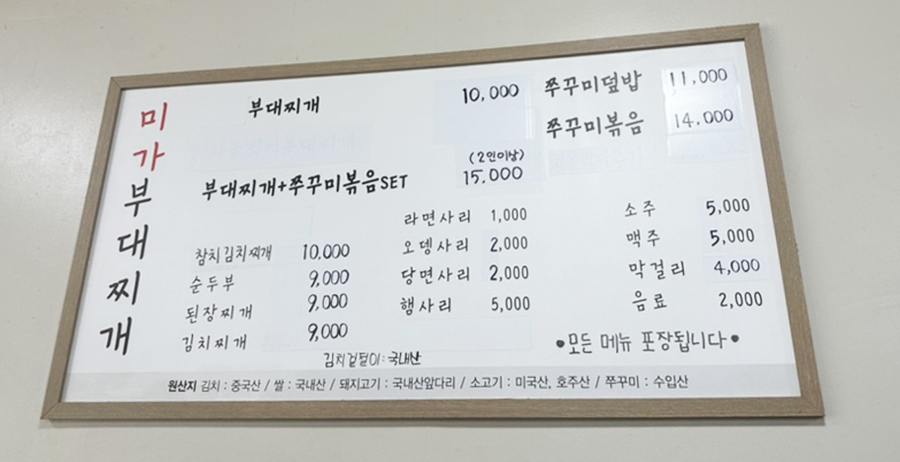 미가부대찌개
부대찌개 10,000
(2인이상)
부대찌개+쭈꾸미볶음SET 15,000
쭈꾸미덮밥 11,000
쭈꾸미볶음 14,000
참치김치찌개 10,000
순두부 9,000
된장찌개 9,000
김치찌개 9,000
라면사리 1,000
오뎅사리 2,000
당면사리 2,000
햄사리 5,000
소주 5,000
맥주 5,000
막걸리 4,000
음료 2,000
•모든 메뉴 포장됩니다•
김치겉절이:국내산
원산지 김치 : 중국산 / 쌀 : 국내산 / 돼지고기 : 국내산암다리 / 소고기 : 미국산, 호주산 / 쭈꾸미 : 수입산